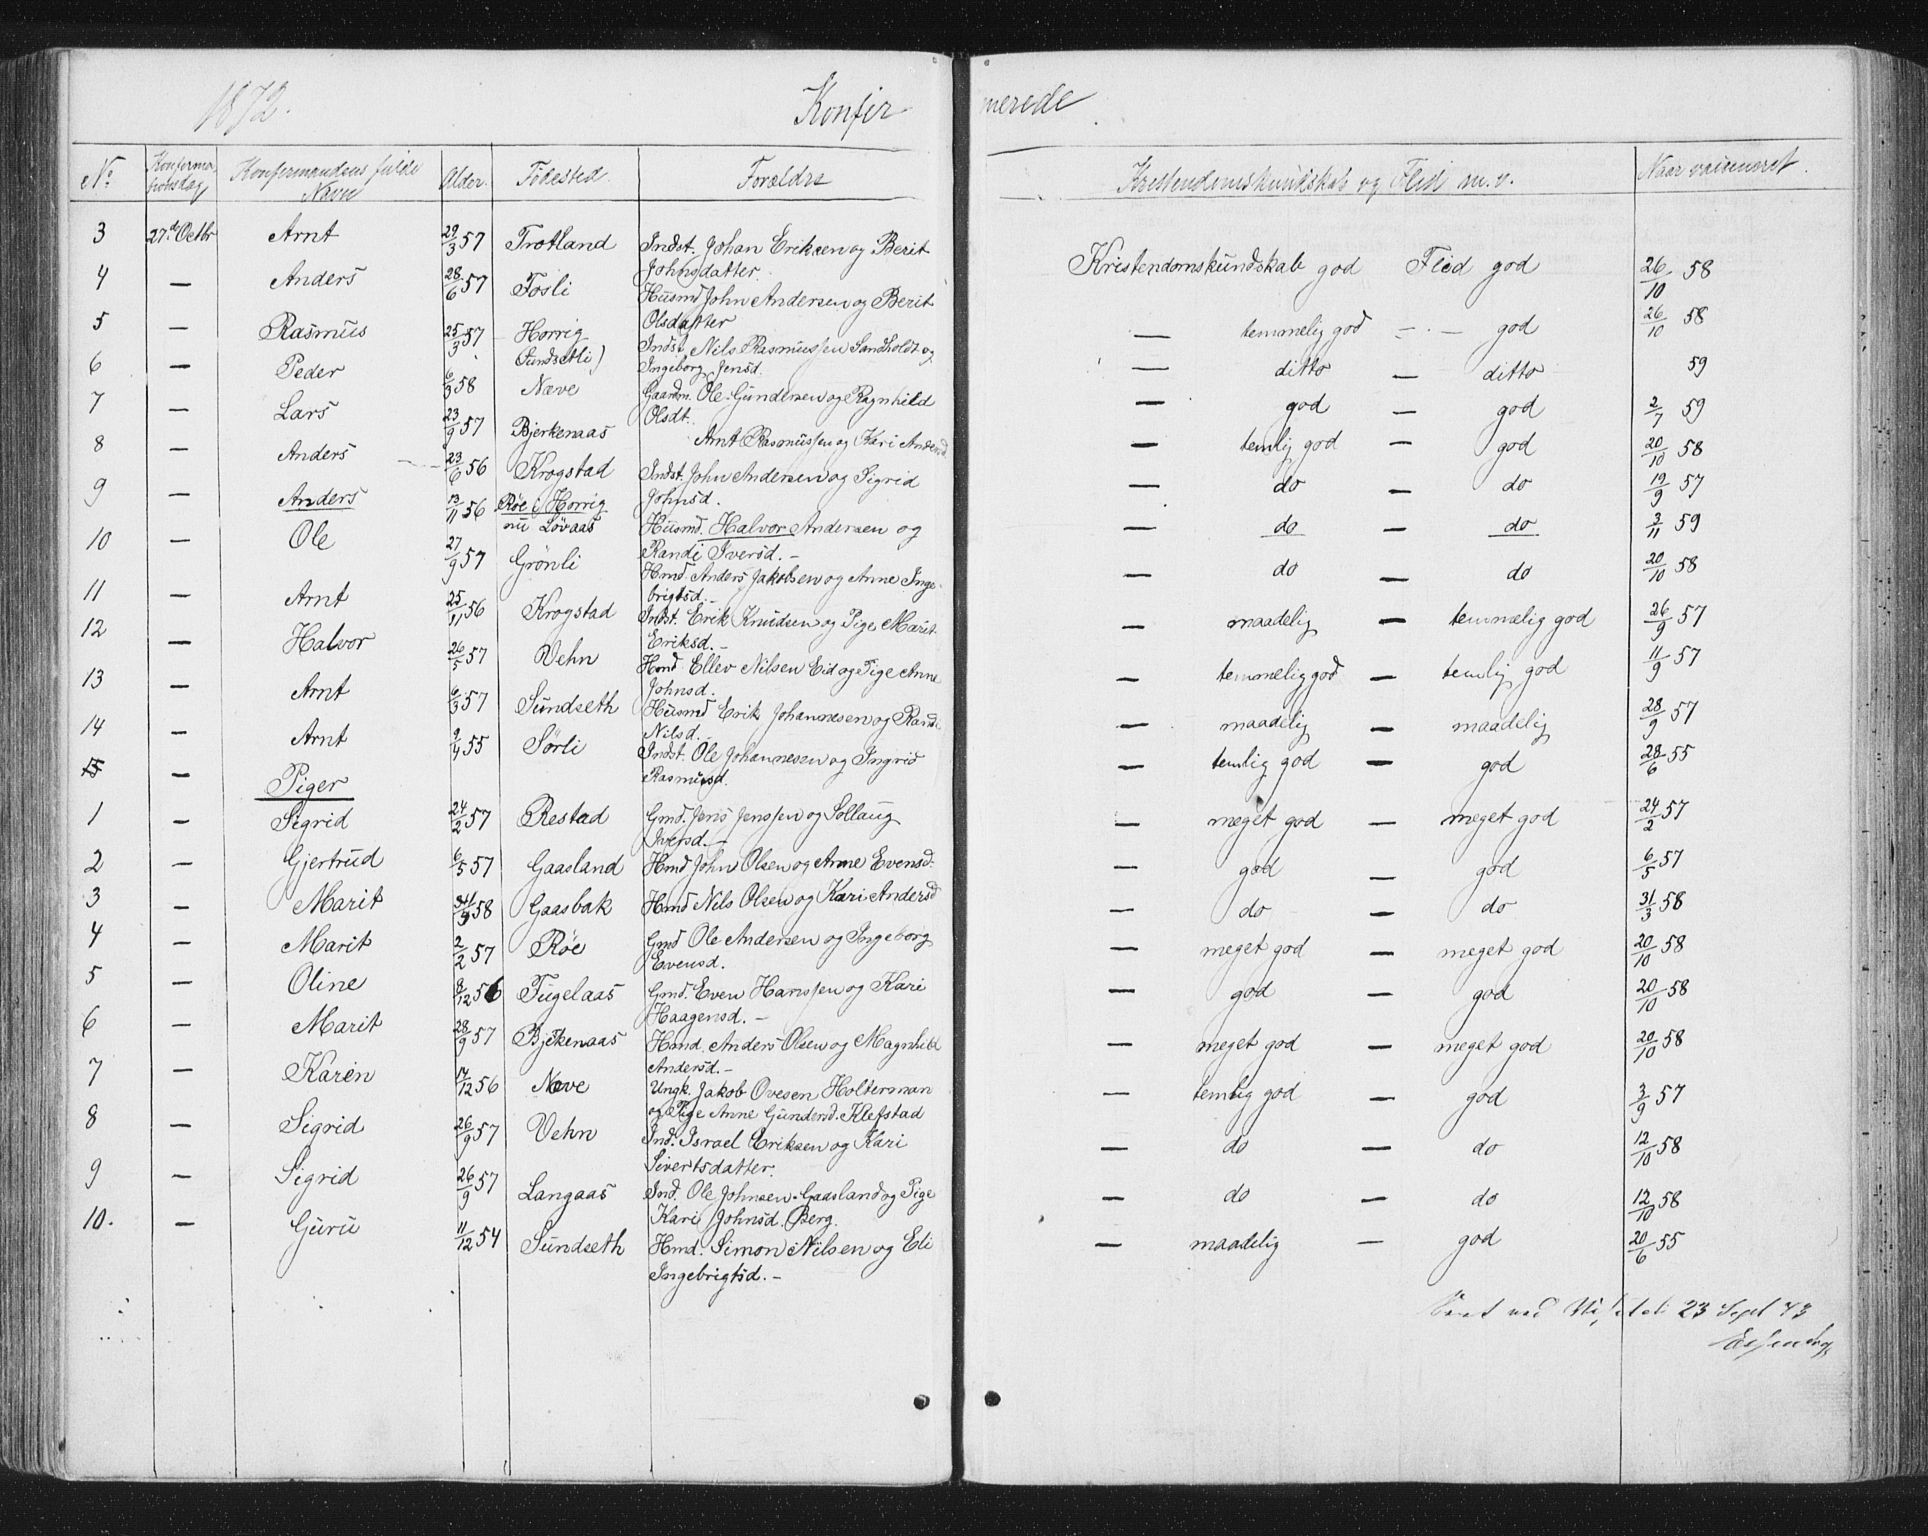 1872. Konfirmerede
No. Konfirmationsdag Konfirmandens fulde Navn Alder. Fødested. Forældre Kristendomskundskab og Flid m. v. Naar vaccineret.
3 27de Octbr Arnt 29/3 57 Trotland Indst. Johan Eriksen og Berit Johnsdatter. Kristendomskundskab god Flid god 26/10 58
4 — Anders 28/6 57 Fosli Husmd John Andersen og Berit Olsdatter — temmelig god — god 26/10 58
5 — Rasmus 25/3 57 Horrig (Sundsetli) Indst. Nils Rasmussen Sandholdt og Ingeborg Jensd. — ditto — ditto 59
6 — Peder 6/3 58 Næve Gaardm. Ole Gundersen og Ragnhild Olsdt. — god — god 2/7 59
7 — Lars 23/9 57 Bjerkenaas Arnt Rasmussen og Kari Andersd — temlig god — god 20/10 58
8 — Anders 23/6 56 Krogstad Indst. John Andersen og Sigrid Johnsd. — do — do 19/9 57
9 — Anders 13/11 56 Røe i Horrig nu Løvaas Husmd. Halvor Andersen og Randi Iversd. — — do — do 3/11 59
10 — Ole 27/9 57 Grønli Hmd. Anders Jakobsen og Anne Ingebrigtsd. — — do — do 20/10 58
11 — Arnt 25/11 56 Krogstad Indst. Erik Knudsen og Pige Marit Eriksd. — — maadelig — temmelig god 26/9 57
12 — Halvor 26/5 57 Vehn Hmd. Ellev Nilsen Eid og Pige Anne Johnsd. — temmelig god — temlig god 11/9 57
13 — Arnt 6/3 57 Sundseth Husmd Erik Johannesen og Randi Nilsd. — maadelig — maadelig 28/9 57
14 — Arnt 9/4 55 Sørli Indst. Ole Johannesen og Ingrid Rasmusd. — temlig god — god 28/6 55
15 — Piger
1 — Sigrid 24/2 57 Restad Gmd. Jens Jenssen og Sollaug Iversd. — — meget god — meget god 24/2 57
2 — Gjertrud 6/5 57 Gaasland Hmd John Olsen og Anne Evensd. — god — god 6/5 57
3 — Marit 31/3 58 Gaasbak Hmd Nils Olsen og Kari Andersd — do — do 31/3 58
4 — Marit 2/2 57 Røe Gmd Ole Andersen og Ingeborg Evensd. — meget god — meget god 20/10 58
5 — Oline 8/12 56 Fugelaas Gmd. Even Hanssen og Kari Haagensd. — — god — god 20/10 58
6 — Marit 28/9 57 Bjekenaas Hmd. Anders Olsen og Magnhild Andersd. — — meget god — meget god 20/10 58
7 — Karen 14/12 56 Næve Ungk. Jakob Ovesen Holterman og Pige Anne Gundersd. Klefstad — temlig god — god 3/9 57
8 — Sigrid 26/9 57 Vehn Ind. Israel Eriksen og Kari Sivertsdatter. — do — do 12/10 58
9 — Sigrid 26/9 57 Langaas Ind. Ole Johnsen Gaasland og Pige Kari Johnsd. Berg. — do — do 12/10 58
10. — Guru 11/12 54 Sundseth Hmd. Simon Nilsen og Eli Ingebrigtsd. — — maadelig — god 20/6 55
23 Sept 73